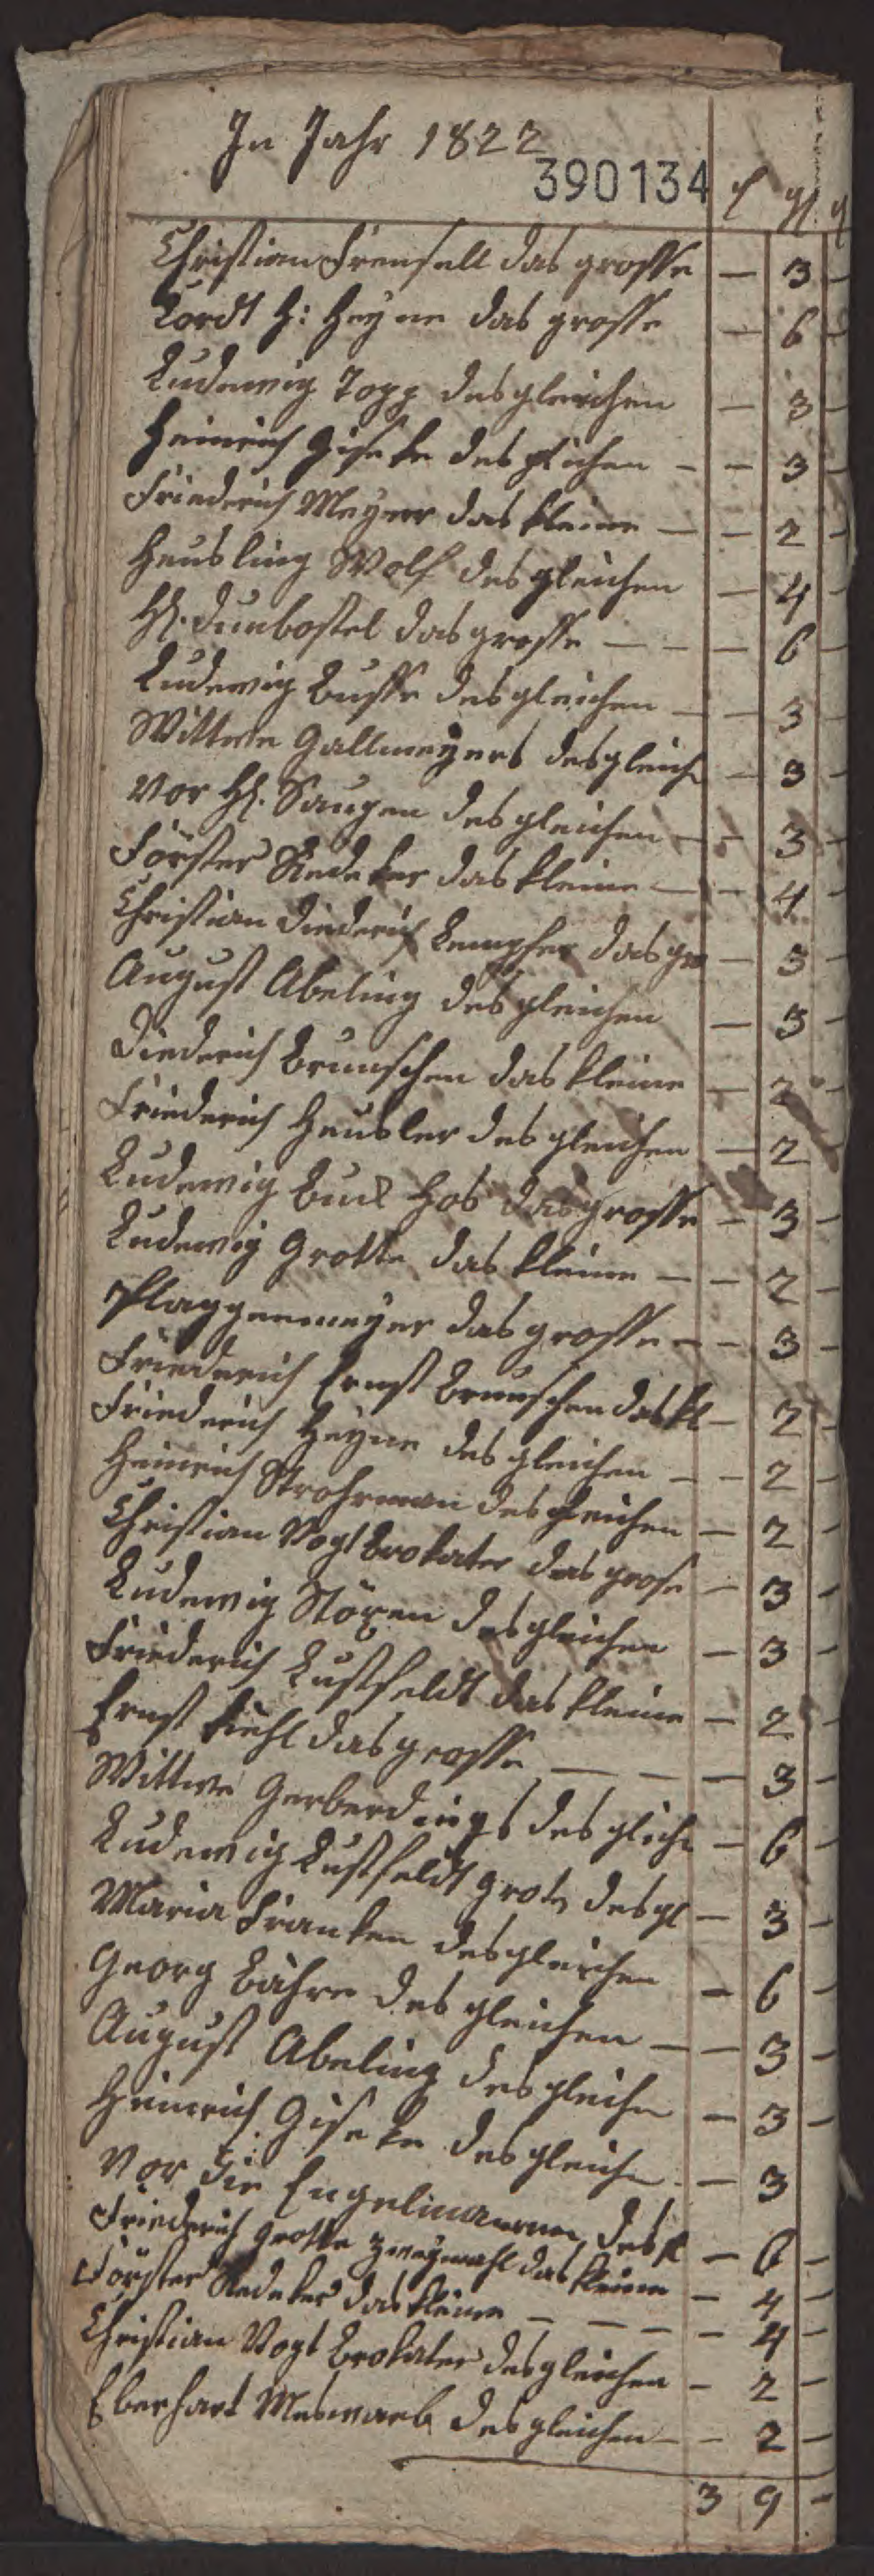 In Jahr 1822
390134
Christian Frensell das grosse — 3 —
Cordt H: Heyne das grosse — 6 —
Ludewig Topp desgleichen — 3 —
Heinrich Giseke desgleichen — — 3 —
Friederich Meyer das kleine — — 2 —
Heusling Wolf desgleichen — 4 —
H. Dunbostel das grosse — — — 6 —
Ludewig Busse desgleichen — — 3 —
Wittwe Gallmeyers desgleich — 3 —
Vor H. desgleichen — — 3 —
Förster Redeker das kleine — — 4 —
Christian Diederich das gro — 3 —
August Abeling desgleichen — 3 —
Diederich Brunschen das kleine — 2 —
Friederich Heusler desgleichen — 2 —
Ludewig das grosse — 3 —
Ludewig Grotte das kleine — — 2 —
Plaggenmeyer das grosse — — 3 —
Friederich Ernst Brunschen das kl — 2 —
Friederich Heyne desgleichen — — 2 —
Heinrich Strohman desgleichen — 2 —
Christian Vogt Brokater das grose — 3 —
Ludewig Stöxen desgleichen — 3 —
Friederich Lustfeldt das kleine — 2 —
Ernst Kiehl das grosse — — — 3 —
Wittwe Gerberdings desgleich — 6 —
Ludewig Lustfeldt grote desgl — 3 —
Maria Franken desgleichen — 6 —
Georg Bähre desgleichen — — 3 —
August Abeling desgleichn — 3 —
Heinrich Giseke desgleich — 3 —
Vor die Engelmannen desgl — 6 —
Friederich Grotte zweymahl das kleine — 4 —
Förster Redeker das kleine — — — — 4 —
Christian Vogt Brokater desgleichen — 2 —
Eberhart Meswarb desgleichen — — 2 —
3 9 —